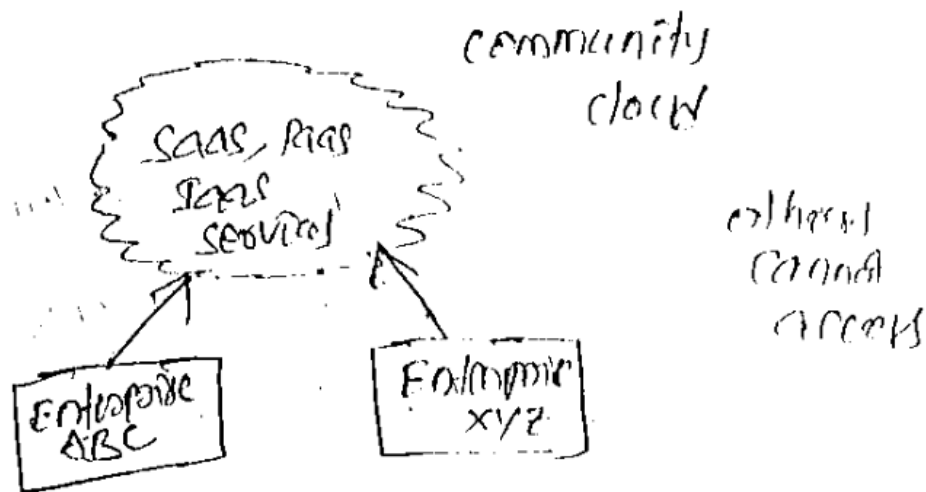 community
cloud
SaaS, PaaS
IaaS
services
others
cannot
access
Enterprise
ABC
Enterprise
XYZ